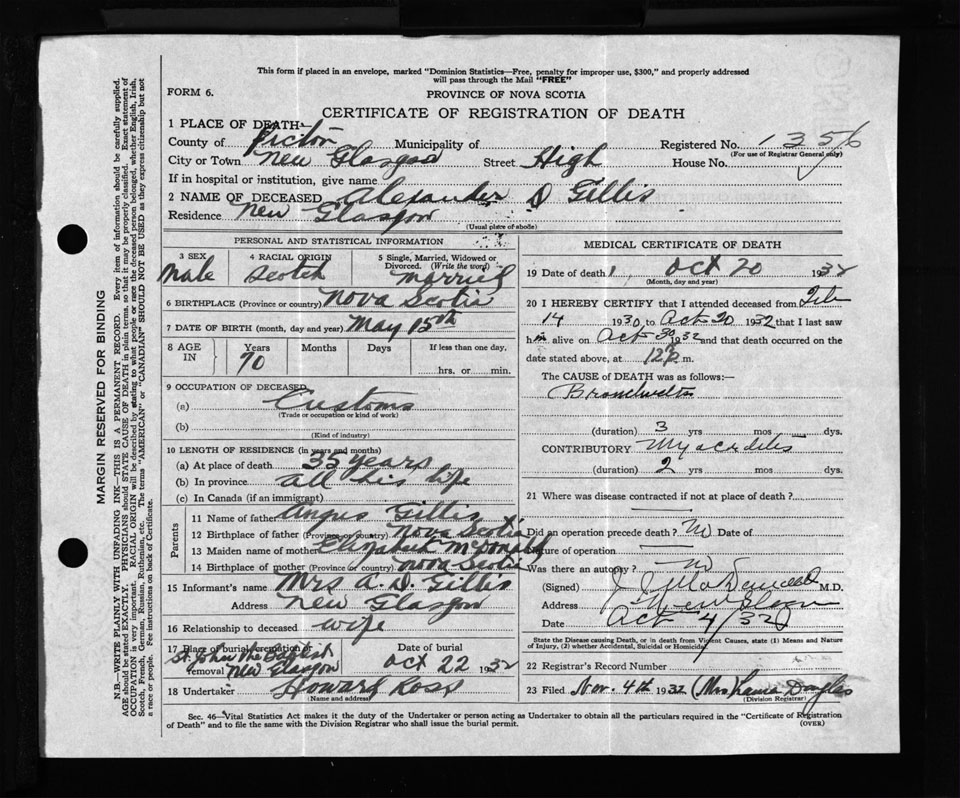 This form if placed in an envelope, marked "Dominion Statistics—Free, penalty for improper use, $300," and properly addressed
will pass through the Mail "FREE"
FORM 6.
PROVINCE OF NOVA SCOTIA
CERTIFICATE OF REGISTRATION OF DEATH
1 PLACE OF DEATH—
County of Pictou Municipality of Registered No. 1356
(For use of Registrar General only)
City or Town New Glasgow Street High House No.
If in hospital or institution, give name
2 NAME OF DECEASED Alexander D Gillis
Residence New Glasgow
(Usual place of abode)
PERSONAL AND STATISTICAL INFORMATION
3 SEX 4 RACIAL ORIGIN 5 Single, Married, Widowed or
Divorced. (Write the word)
Male Scotch Married
6 BIRTHPLACE (Province or country) Nova Scotia
7 DATE OF BIRTH (month, day and year) May 15th
8 AGE IN Years Months Days If less than one day.
70 hrs. or min.
9 OCCUPATION OF DECEASED
(a) Customs
(Trade or occupation or kind of work)
(b)
(Kind of industry)
10 LENGTH OF RESIDENCE (in years and months)
(a) At place of death 35 years
(b) In province all his life
(c) In Canada (if an immigrant)
Parents
11 Name of father Angus Gillis
12 Birthplace of father (Province or country) Nova Scotia
13 Maiden name of mother Elizabeth McDonald
14 Birthplace of mother (Province or country) Nova Scotia
15 Informant's name Mrs A. D. Gillis
Address New Glasgow
16 Relationship to deceased wife
17 Place of burial, cremation or Date of burial
St John the Baptist
removal New Glasgow Oct 22 1932
18 Undertaker Howard Ross
(Name and address)
MEDICAL CERTIFICATE OF DEATH
19 Date of death Oct 20 1932
(Month, day and year)
20 I HEREBY CERTIFY that I attended deceased from Feb
14 1930 to Oct 20 1932 that I last saw
him alive on Oct 1932 and that death occurred on the
date stated above, at 12 m.
The CAUSE of DEATH was as follows:—
(duration) 3 yrs mos dys.
CONTRIBUTORY
(duration) 2 yrs mos dys.
21 Where was disease contracted if not at place of death?
Did an operation precede death? No Date of
Nature of operation
Was there an autopsy? No
(Signed) M.D.
Address
Date Oct 4/32
State the Disease causing Death, or in death from Violent Causes, state (1) Means and Nature
of Injury, (2) whether Accidental, Suicidal or Homicidal.
22 Registrar's Record Number
23 Filed Nov. 4th 1932 (Mrs) Douglas
(Division Registrar)
Sec. 46—Vital Statistics Act makes it the duty of the Undertaker or person acting as Undertaker to obtain all the particulars required in the "Certificate of Registration
of Death" and to file the same with the Division Registrar who shall issue the burial permit.
(OVER)
MARGIN RESERVED FOR BINDING
N.B.—WRITE PLAINLY WITH UNFADING INK—THIS IS A PERMANENT RECORD. Every item of information should be carefully supplied.
AGE should be stated EXACTLY. PHYSICIANS should STATE CAUSE OF DEATH in plain terms, so that it may be properly classified. Exact statement of
OCCUPATION is very important. RACIAL ORIGIN will be described by stating to what people or race the deceased person belonged, whether English, Irish,
Scotch, French, German, Russian, Ruthenian, etc. The terms "AMERICAN" or "CANADIAN" SHOULD NOT BE USED as they express citizenship but not
a race or people. Fee instructions on back of Certificate.